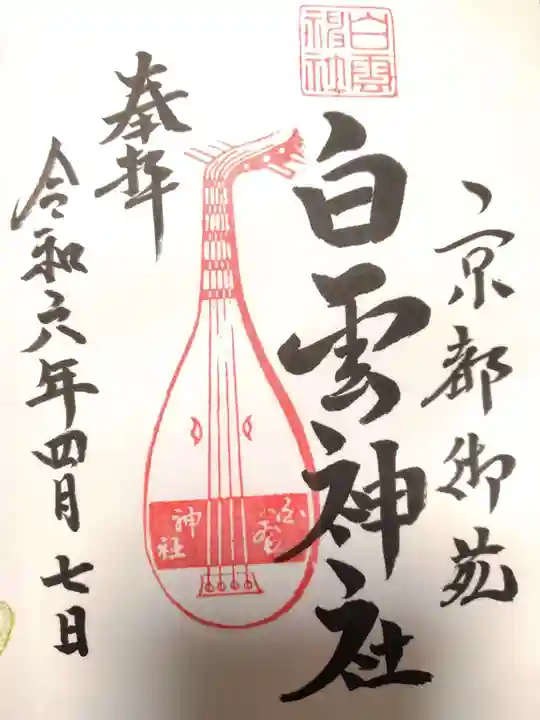 京都御苑
白雲神社
白雲神社
白雲
神社
奉拝
令和六年四月七日